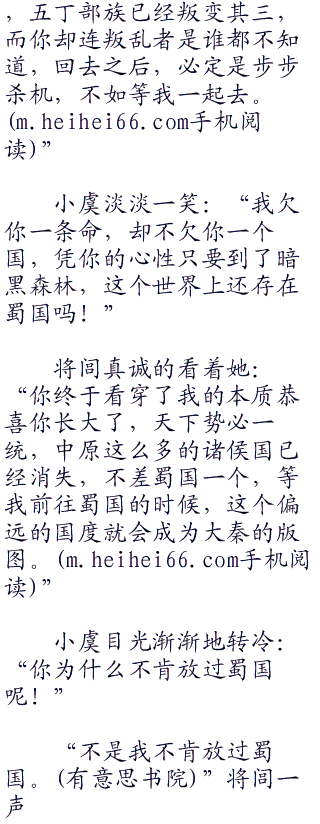 ，五丁部族已经叛变其三，
而你却连叛乱者是谁都不知
道，回去之后，必定是步步
杀机，不如等我一起去。
(m.heihei66.com手机阅
读)”
小虞淡淡一笑：“我欠
你一条命，却不欠你一个
国，凭你的心性只要到了暗
黑森林，这个世界上还存在
蜀国吗！”
将闾真诚的看着她：
“你终于看穿了我的本质恭
喜你长大了，天下势必一
统，中原这么多的诸侯国已
经消失，不差蜀国一个，等
我前往蜀国的时候，这个偏
远的国度就会成为大秦的版
图。(m.heihei66.com手机阅
读)”
小虞目光渐渐地转冷：
“你为什么不肯放过蜀国
呢！”
“不是我不肯放过蜀
国。(有意思书院)”将闾一
声